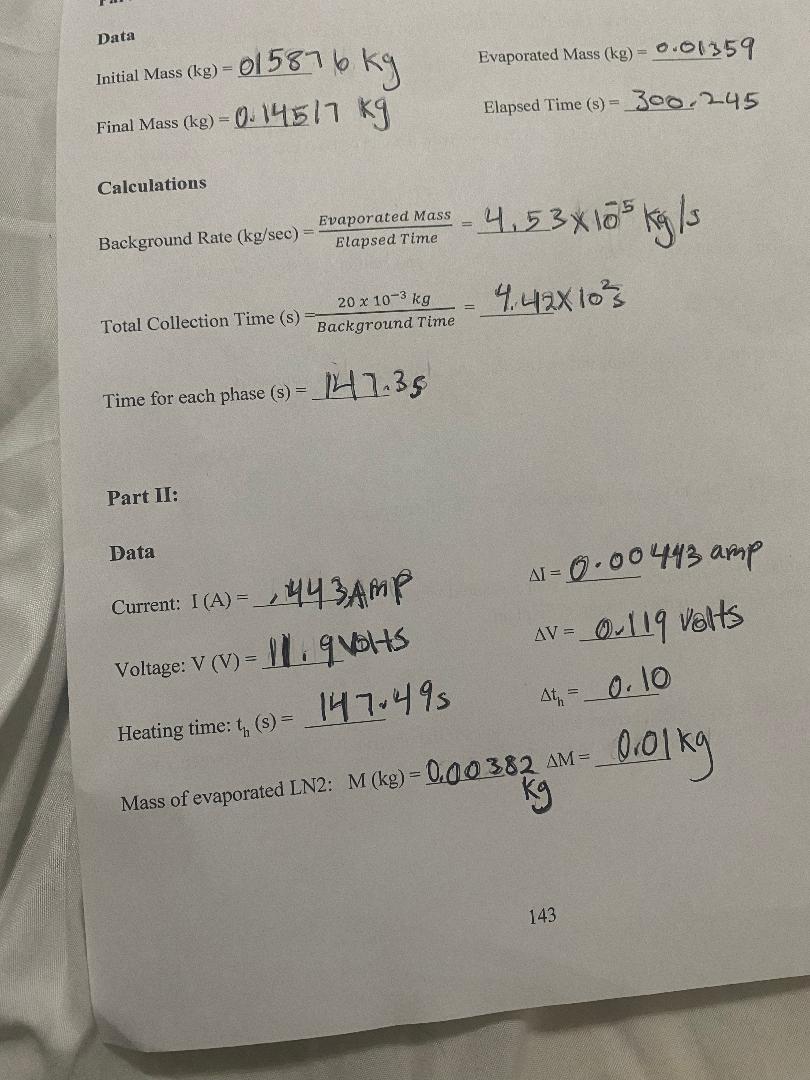 Data
Initial Mass (kg) = 015876 kg Evaporated Mass (kg) = 0.01359
Final Mass (kg) = 0.14517 kg Elapsed Time (s) = 300.245
Calculations
Background Rate (kg/sec) = Evaporated Mass / Elapsed Time = 4.53 x 10⁻⁵ kg/s
Total Collection Time (s) = 20 x 10⁻³ kg / Background Time = 4.42 x 10² s
Time for each phase (s) = 147.3s
Part II:
Data
Current: I (A) = .443 Amp ΔI = 0.00443 amp
Voltage: V (V) = 11.9 volts ΔV = 0.119 volts
Heating time: tₕ (s) = 147.49s Δtₕ = 0.10
Mass of evaporated LN2: M (kg) = 0.00382 kg ΔM = 0.01 kg
143